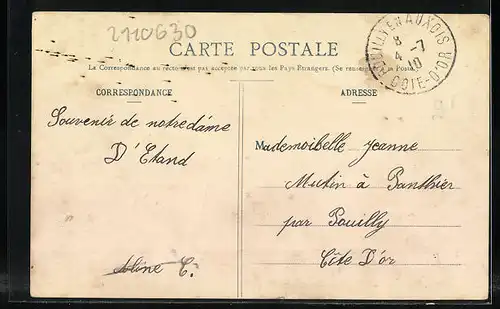 2110630
CARTE POSTALE
La Correspondance au recto n'est pas acceptée par tous les Pays Étrangers. (Se renseigner à la Poste)
CORRESPONDANCE
ADRESSE
POUILLY-EN-AUXOIS
8
4 -7
10
CÔTE-D'OR
Souvenir de notre dâme
D'Etand
Aline C.
Mademoiselle Jeanne
Mutin à Panthier
par Pouilly
Côte D'or